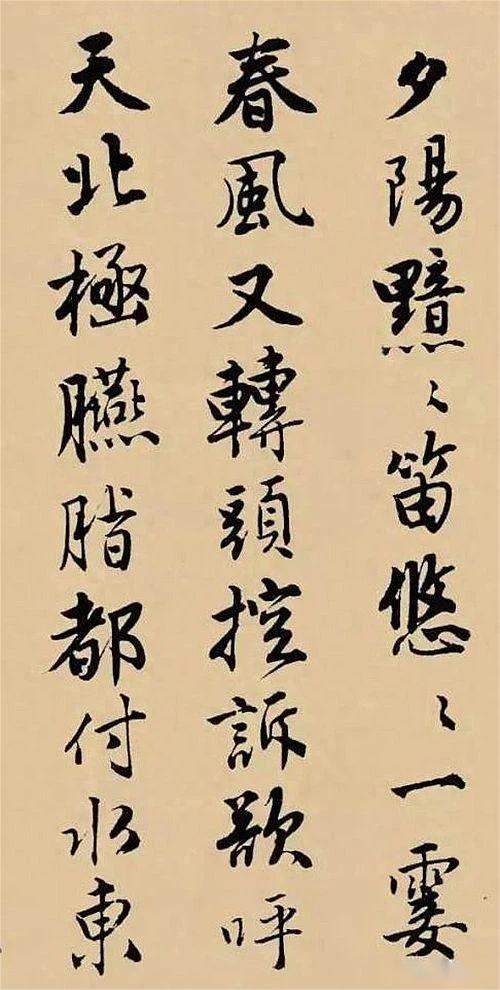 夕陽黯〻笛悠〻一霎
春風又轉頭控訴欲呼
天北極臙脂都付水東